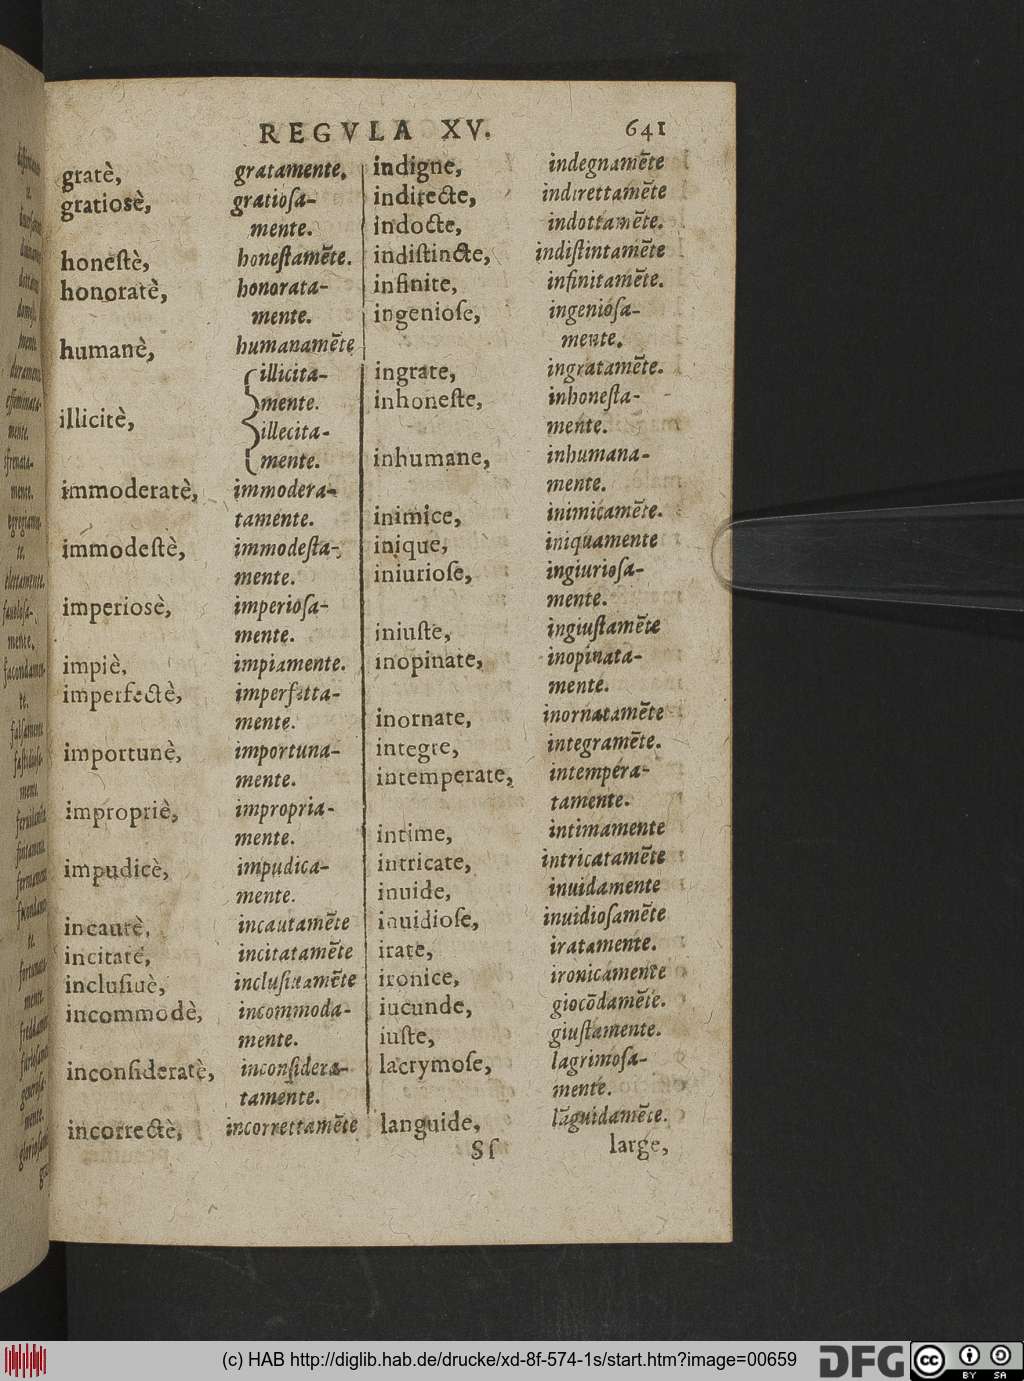 REGVLA XV. 641
gratè, gratamente.
gratiosè, gratioſa-
mente.
honeſtè, honeſtamẽte.
honoratè, honorata-
mente.
humanè, humanamẽte
illicitè, illicita-
mente.
illecita-
mente.
immoderatè, immodera-
tamente.
immodeſtè, immodeſta-
mente.
imperiosè, imperioſa-
mente.
impiè, impiamente.
imperfectè, imperfetta-
mente.
importunè, importuna-
mente.
impropriè, impropria-
mente.
impudicè, impudica-
mente.
incautè, incautamẽte
incitatè, incitatamẽte
incluſiuè, incluſiuamẽte
incommodè, incommoda-
mente.
inconſideratè, inconſidera-
tamente.
incorrectè, incorrettamẽte
indigne, indegnamẽte
indirecte, indirettamẽte
indocte, indottamẽte.
indiſtincte, indiſtintamẽte
infinite, infinitamẽte.
ingenioſe, ingenioſa-
mente.
ingrate, ingratamẽte.
inhoneſte, inhoneſta-
mente.
inhumane, inhumana-
mente.
inimice, inimicamẽte.
inique, iniquamente
iniurioſe, ingiurioſa-
mente.
iniuſte, ingiuſtamẽte
inopinate, inopinata-
mente.
inornate, inornatamẽte
integre, integramẽte.
intemperate, intempera-
tamente.
intime, intimamente
intricate, intricatamẽte
inuide, inuidamente
inuidioſe, inuidioſamẽte
irate, iratamente.
ironice, ironicamente
iucunde, giocõdamẽte.
iuſte, giuſtamente.
lacrymoſe, lagrimoſa-
mente.
languide, lãguidamẽte.
Sſ large,
(c) HAB http://diglib.hab.de/drucke/xd-8f-574-1s/start.htm?image=00659
DFG
cc BY SA